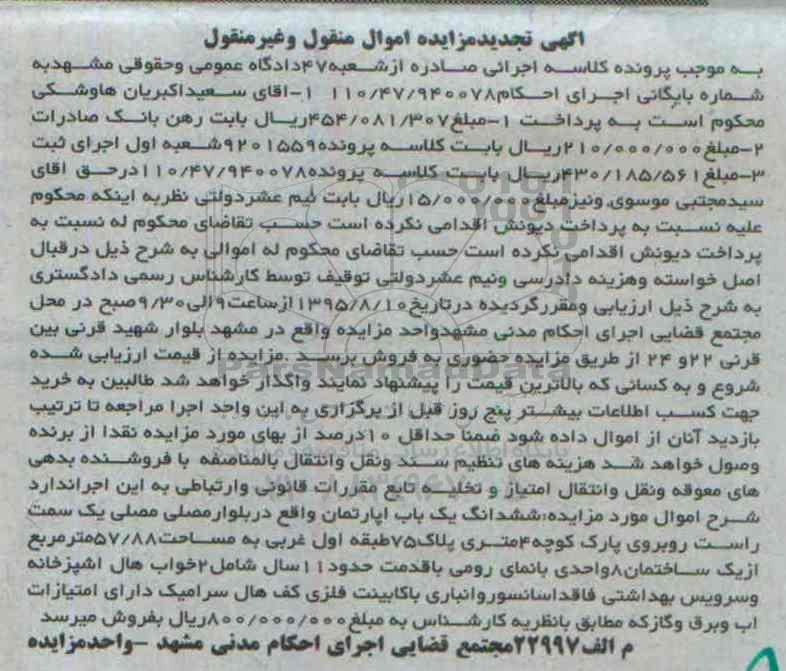 آگهی تجدیدمزایده اموال منقول وغیرمنقول
به موجب پرونده کلاسه اجرائی صادره ازشعبه۴۷دادگاه عمومی وحقوقی مشهدبه
شماره بایگانی اجرای احکام۱۱۰/۴۷/۹۴۰۰۷۸ ۱-اقای سعیداکبریان هاوشکی
محکوم است به پرداخت ۱-مبلغ۴۵۴/۰۸۱/۳۰۷ریال بابت رهن بانک صادرات
۲-مبلغ۲۱۰/۰۰۰/۰۰۰ریال بابت کلاسه پرونده۹۲۰۱۵۵۹شعبه اول اجرای ثبت
۳-مبلغ۴۳۰/۱۸۵/۵۶۱ریال بابت کلاسه پرونده۱۱۰/۴۷/۹۴۰۰۷۸درحق اقای
سیدمجتبی موسوی ونیزمبلغ۱۵/۰۰۰/۰۰۰ریال بابت نیم عشردولتی نظربه اینکه محکوم
علیه نسبت به پرداخت دیونش اقدامی نکرده است حسب تقاضای محکوم له نسبت به
پرداخت دیونش اقدامی نکرده است حسب تقاضای محکوم له اموالی به شرح ذیل درقبال
اصل خواسته وهزینه دادرسی ونیم عشردولتی توقیف توسط کارشناس رسمی دادگستری
به شرح ذیل ارزیابی ومقررگردیده درتاریخ۱۳۹۵/۸/۱۰ازساعت۹الی۹/۳۰صبح در محل
مجتمع قضایی اجرای احکام مدنی مشهدواحد مزایده واقع در مشهد بلوار شهید قرنی بین
قرنی ۲۲و ۲۴ از طریق مزایده حضوری به فروش برسد .مزایده از قیمت ارزیابی شده
شروع و به کسانی که بالاترین قیمت را پیشنهاد نمایند واگذار خواهد شد طالبین به خرید
جهت کسب اطلاعات بیشتر پنج روز قبل از برگزاری به این واحد اجرا مراجعه تا ترتیب
بازدید آنان از اموال داده شود ضمنا حداقل ۱۰درصد از بهای مورد مزایده نقدا از برنده
وصول خواهد شد هزینه های تنظیم سند ونقل وانتقال بالمناصفه با فروشنده بدهی
های معوقه ونقل وانتقال امتیاز و تخلیه تابع مقررات قانونی وارتباطی به این اجراندارد
شرح اموال مورد مزایده:ششدانگ یک باب اپارتمان واقع دربلوارمصلی مصلی یک سمت
راست روبروی پارک کوچه۴متری پلاک۷۵طبقه اول غربی به مساحت۵۷/۸۸مترمربع
ازیک ساختمان۸واحدی بانمای رومی باقدمت حدود۱۱سال شامل۲خواب هال اشپزخانه
وسرویس بهداشتی فاقداسانسوروانباری باکابینت فلزی کف هال سرامیک دارای امتیازات
اب وبرق وگازکه مطابق بانظریه کارشناس به مبلغ۸۰۰/۰۰۰/۰۰۰ریال بفروش میرسد
م الف۲۲۹۹۷مجتمع قضایی اجرای احکام مدنی مشهد -واحدمزایده
ParsNamadData